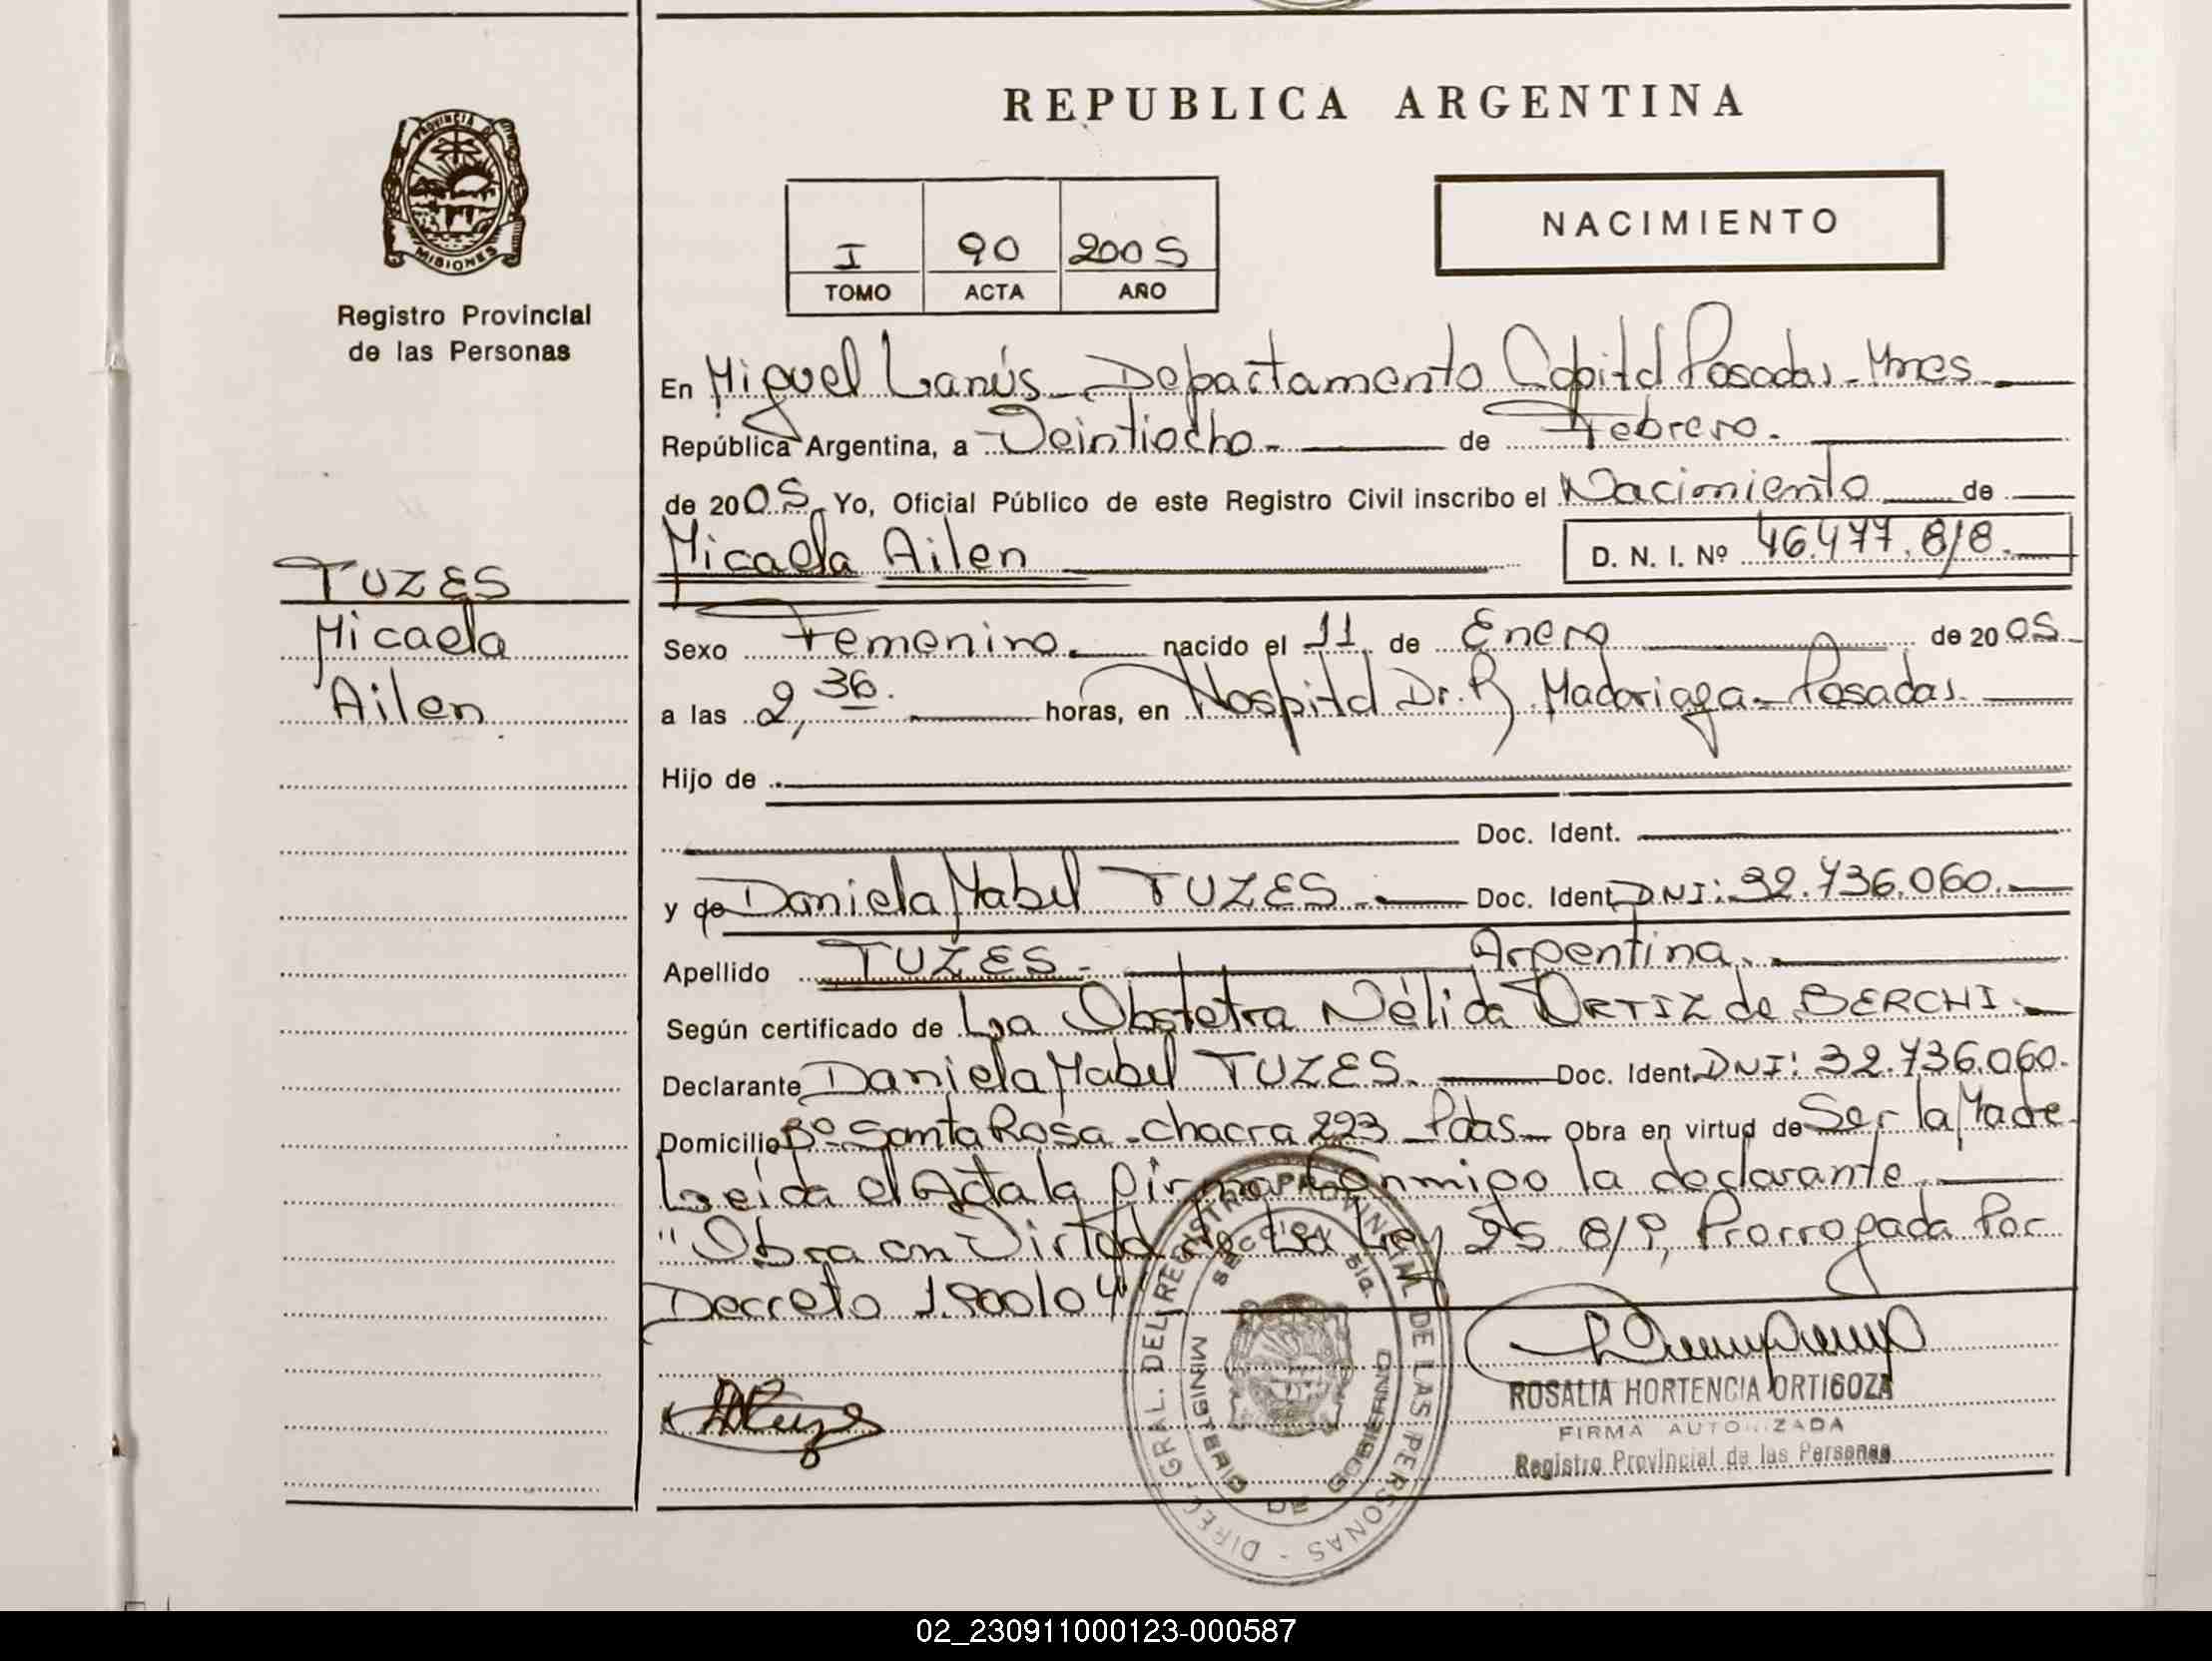 REPUBLICA ARGENTINA
PROVINCIA DE
MISIONES
Registro Provincial
de las Personas
NACIMIENTO
I 90 2005
TOMO ACTA AÑO
En Miguel Lanús - Departamento Capital Posadas - Mnes
República Argentina, a Veintiocho - de Febrero.
de 2005. Yo, Oficial Público de este Registro Civil inscribo el Nacimiento de
Micaela Ailen D. N. I. Nº 46.477.818.
TUZES
Micaela
Ailen
Sexo Femenino. nacido el 11 de Enero de 2005
a las 2,36. horas, en Hospital Dr. R. Madariaga - Posadas.
Hijo de
Doc. Ident.
y de Daniela Mabel TUZES. Doc. Ident. DNI: 32.736.060.
Apellido TUZES - Argentina.
Según certificado de La Obstetra Nélida ORTIZ de BERCHI.
Declarante Daniela Mabel TUZES. Doc. Ident. DNI: 32.736.060.
Domicilio Bº Santa Rosa - chacra 223 Pdas - Obra en virtud de Ser la Madre
Leída el Acta la firma conmigo la declarante
"Obra en Virtud de La Ley 25.819, Prorrogada Por
Decreto 1.900/04"
ROSALIA HORTENCIA ORTIGOZA
FIRMA AUTORIZADA
Registro Provincial de las Personas
DIREC. GRAL. DEL REGISTRO PROVINCIAL DE LAS PERSONAS -
SECCION
MINISTERIO DE GOBIERNO
02_230911000123-000587